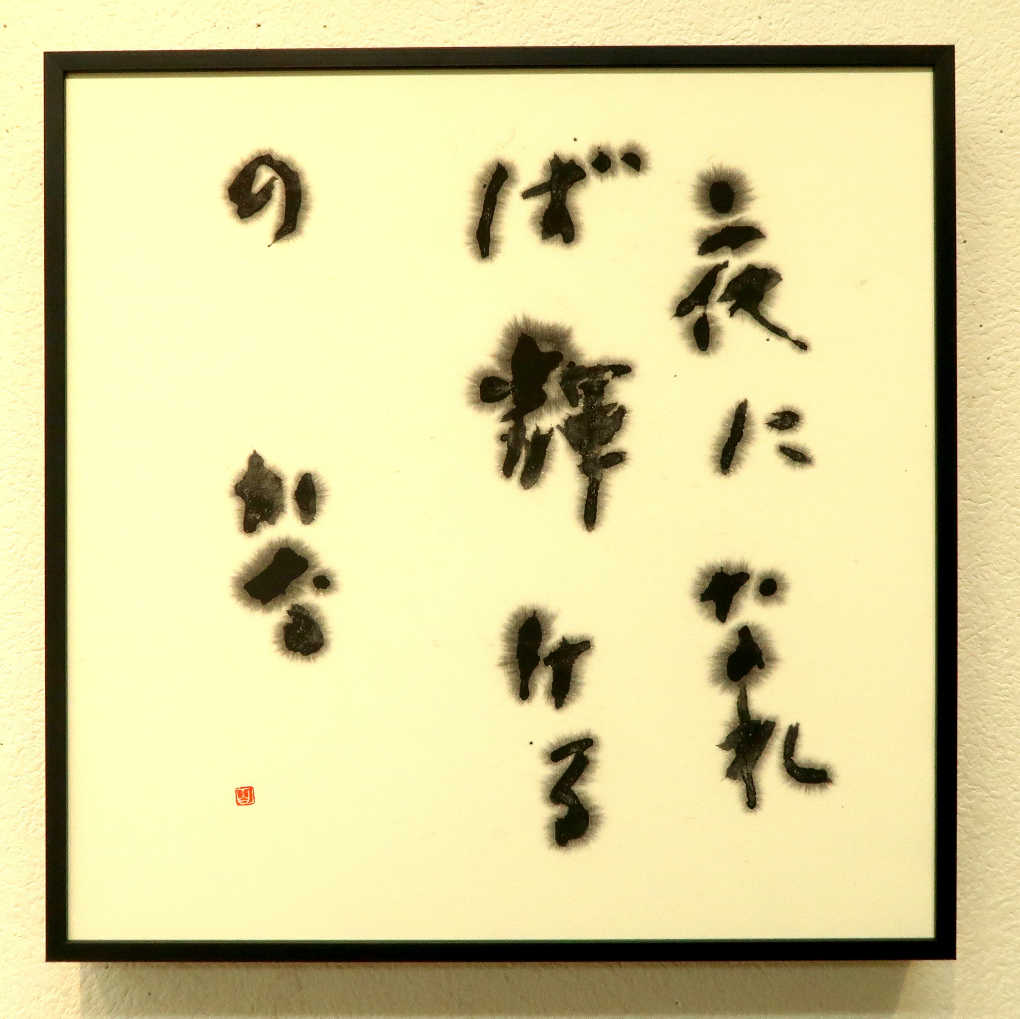 夜になれ
ば輝ける
のかな